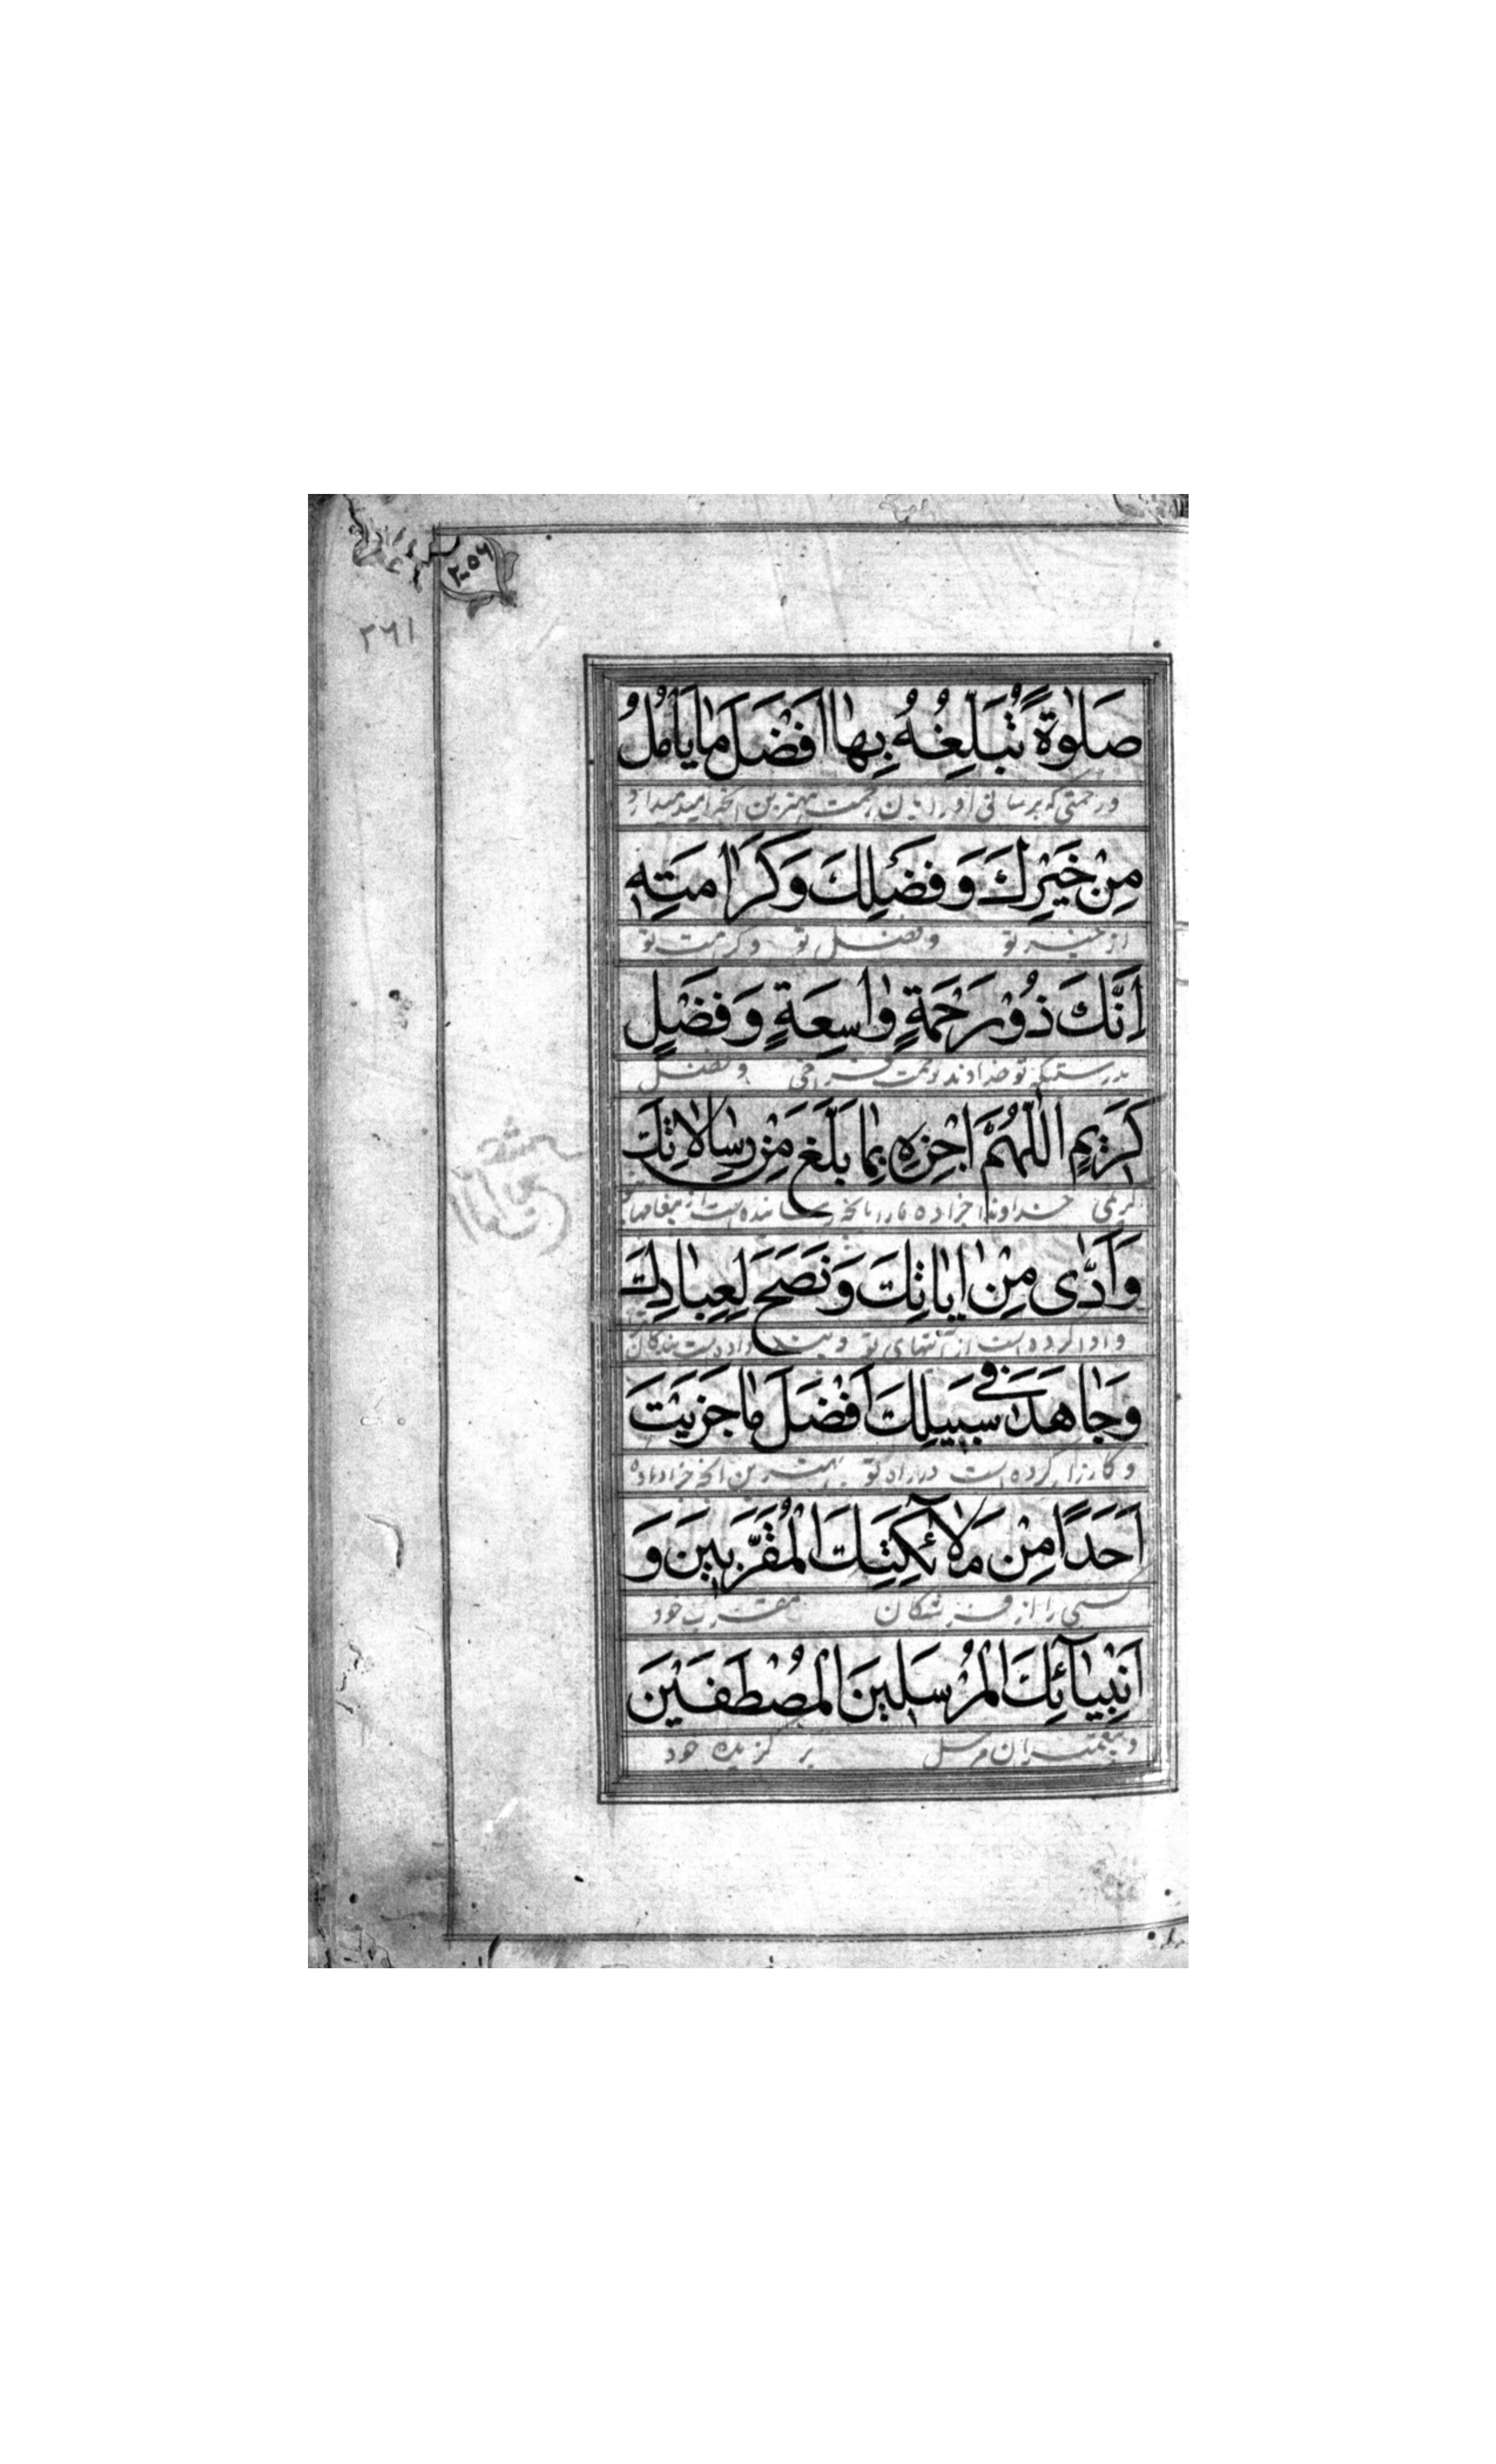 ۲۰۵۶
۲۶۱
صَلٰوةً تُبَلِّغُهُ بِهٰا اَفْضَلَ مٰا يَأْمُلُ
و رحمتی که برسانی او را بان رحمت بهترین آنچه امید میدارد
مِنْ خَيْرِكَ وَ فَضْلِكَ وَ كَرٰامَتِهِ
از خیر تو و فضل تو و کرامت تو
اِنَّكَ ذُوْ رَحْمَةٍ وٰاسِعَةٍ وَ فَضْلٍ
بدرستیکه تو خداوند رحمت فراخی و فضل
كَرٖيمٍ اَللّٰهُمَّ اجْزِهِ بِمٰا بَلَّغَ مِنْ رِسٰالاٰتِكَ
کریمی خداوندا جزا ده او را بانچه رسانیده است از پیغامهای
وَ اَدّٰى مِنْ اٰيٰاتِكَ وَ نَصَحَ لِعِبٰادِكَ
و ادا کرده است از آیتهای تو و پند داده است بندگان
وَ جٰاهَدَ فٖي سَبٖيلِكَ اَفْضَلَ مٰا جَزَيْتَ
و کارزار کرده است در راه تو بهترین آنچه جزا داده
اَحَدًا مِنْ مَلآٰئِكَتِكَ الْمُقَرَّبٖينَ وَ
کسی را از فرشتگان مقرب خود
اَنْبِيٰآئِكَ الْمُرْسَلٖينَ الْمُصْطَفَيْنَ
و پیغمبران مرسل برگزیده خود